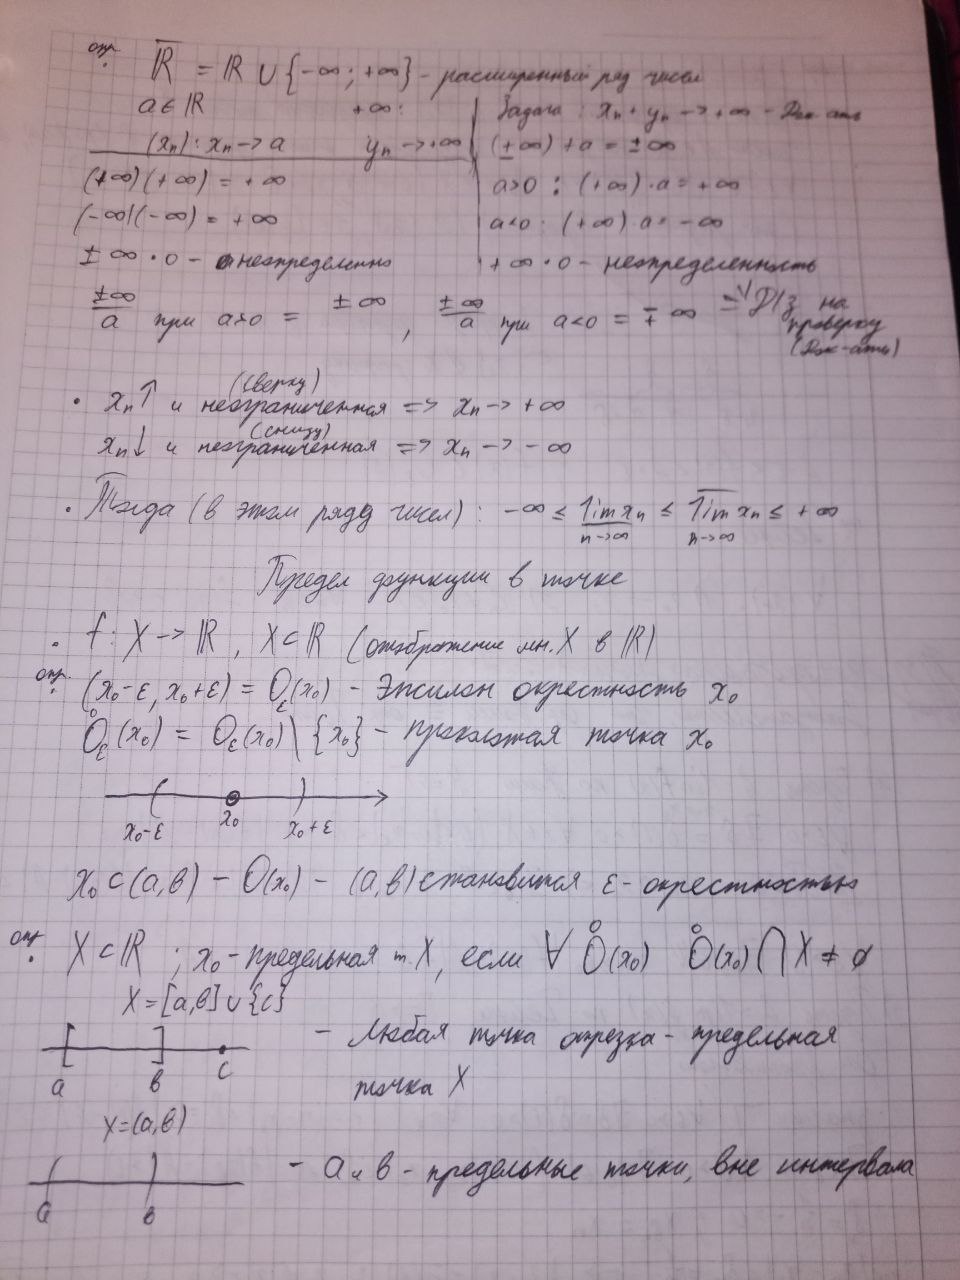 опр. R̅ = ℝ ∪ {-∞; +∞} - расширенный ряд чисел
a ∈ ℝ +∞:
(xₙ): xₙ → a yₙ → +∞
(+∞)(+∞) = +∞
(-∞)(-∞) = +∞
±∞ · 0 - неопределенно
Задача: xₙ + yₙ → +∞ - Док-ать
(±∞) + a = ±∞
a>0 : (+∞) · a = +∞
a<0 : (+∞) · a = -∞
+∞ · 0 - неопределенность
±∞/a при a>0 = ±∞ , ±∞/a при a<0 = ∓∞ Д/з на
проверку
(Док-ать)
(сверху)
• xₙ↑ и неограниченная => xₙ → +∞
(снизу)
xₙ↓ и неограниченная => xₙ → -∞
• Тогда (в этом ряду чисел): -∞ ≤ l̲i̲m̲ xₙ ≤ l̅i̅m̅ xₙ ≤ +∞
n→∞ n→∞
Предел функции в точке
• f: X → ℝ, X ⊂ ℝ (отображение мн. X в ℝ)
опр. (x₀-ε, x₀+ε) = O_ε(x₀) - Эпсилон окрестность x₀
O̊_ε(x₀) = O_ε(x₀) \ {x₀} - проколотая точка x₀
x₀-ε x₀ x₀+ε
x₀ ⊂ (a,в) - O(x₀) - (a,в) становится ε-окрестностью
опр. X ⊂ ℝ ; x₀ - предельная т. X, если ∀ O̊(x₀) O̊(x₀) ⋂ X ≠ ∅
X = [a,в] ∪ {c}
- Любая точка отрезка - предельная
точка X
a в c
X = (a,в)
- a и в - предельные точки, вне интервала
a в